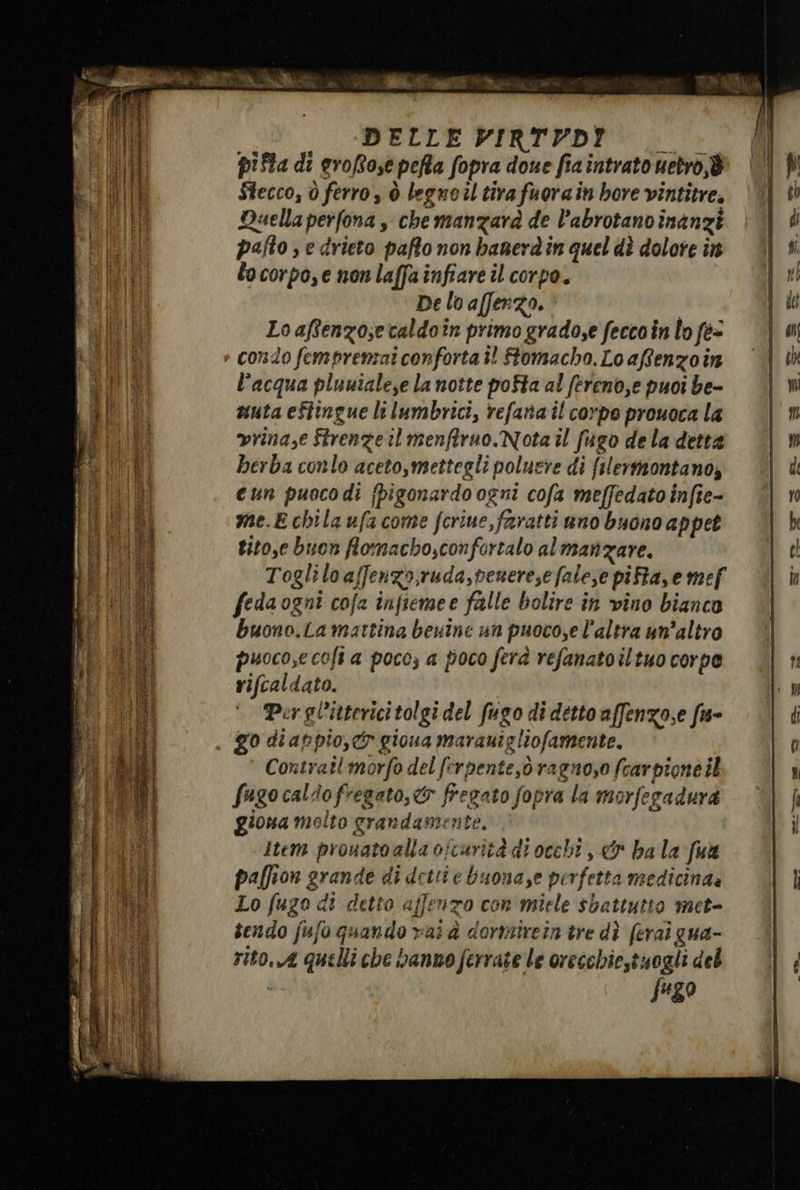 DELLE VIRTVDI
piſta di groſſo,e peſta ſopra doue ſia intrato uetro,ò
ſtecco, ò ferro, ò legno il tira fuora in hore vintitre.
Quella perſona, che manzarà de l'abrotano inanzi
paſto, e drieto paſto non hauerà in quel dì dolore in
lo corpo, e non laſſa infiare il corpo.
De lo aſſenzo.
Lo aſſenzo,e caldo in primo grado,e ſecco in lo ſe-
condo ſempremai conforta il ſtomacho. Lo aſſenzo in
l'acqua pluuiale,e la notte poſta al ſereno,e puoi be-
uuta eſtingue li lumbrici, reſana il corpo prouoca la
vrina,e ſtrenze il menſtruo. Nota il ſugo de la detta
herba con lo aceto, mettegli poluere di ſilermontano,
e un puoco di ſpigonardo ogni coſa meſſedato inſie-
me. E chi la uſa come ſcriue, faratti uno buono appet
tito,e buon ſtomacho, confortalo al manzare.
Togli lo aſſenzo, ruda, peuere,e ſale,e piſta, e meſ
ſeda ogni coſa inſieme e falle bolire in vino bianco
buono. La mattina beuine un puoco,e l'altra un'altro
puoco,e coſi a poco, a poco ſerà reſanato il tuo corpo
riſcaldato.
Per gl'itterici tolgi del ſugo di detto aſſenzo,e ſu-
go di appio, & gioua marauiglioſamente.
Contra il morſo del ſerpente,ò ragno,o ſcarpione il
ſugo caldo fregato, & fregato ſopra la morſegadura
gioua molto grandamente.
Item prouato alla oſcurità di occhi, & ha la ſua
paſſion grande di detti e buona,e perfetta medicina.
Lo ſugo di detto aſſenzo con miele sbattutto met-
tendo ſuſo quando vai à dormire in tre dì ſerai gua-
rito. A quelli che hanno ſerrate le orecchie, tuogli del
ſugo